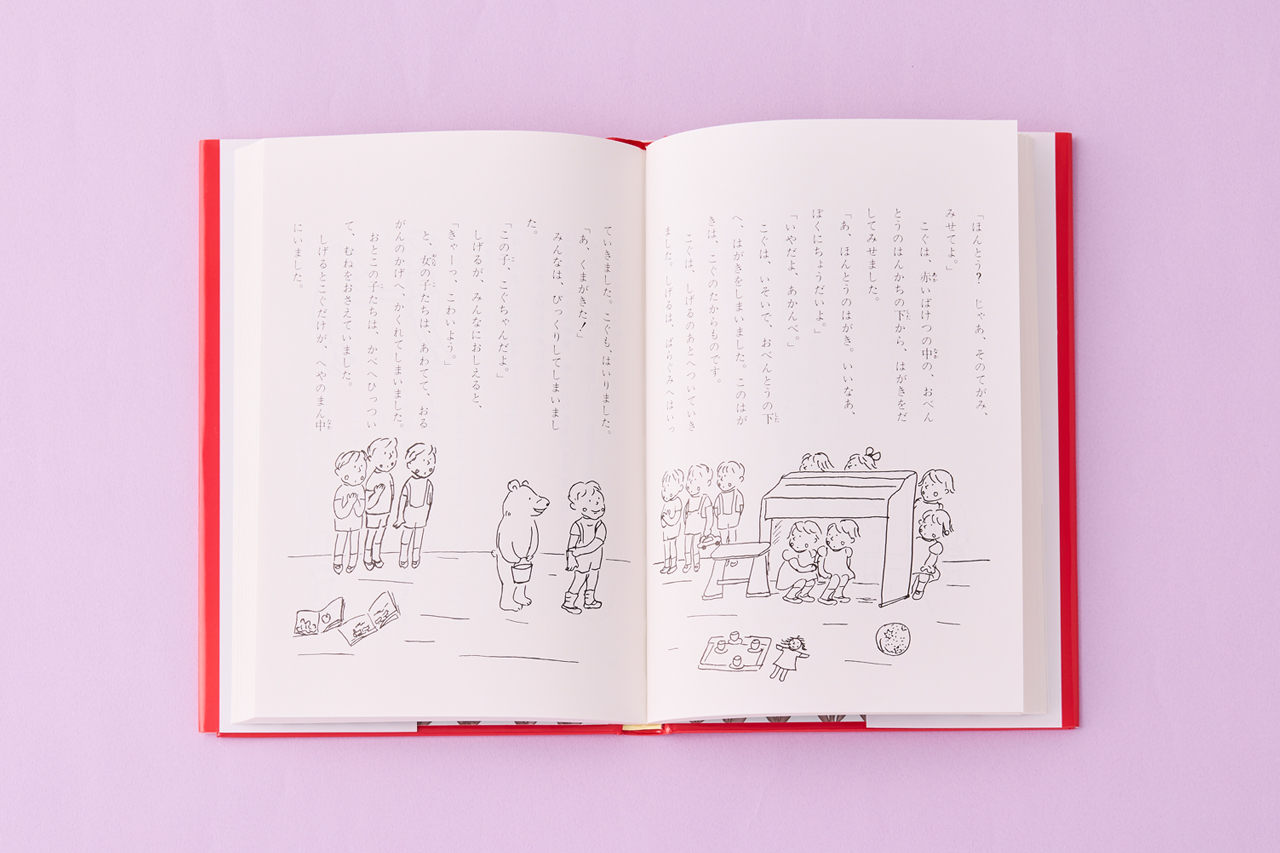 「ほんとう？　じゃあ、そのてがみ、
みせてよ。」
こぐは、赤いばけつの中の、おべん
とうのはんかちの下から、はがきをだ
してみせました。
「あ、ほんとうのはがき。いいなあ、
ぼくにちょうだいよ。」
「いやだよ、あかんべ。」
こぐは、いそいで、おべんとうの下
へ、はがきをしまいました。このはが
きは、こぐのたからものです。
こぐは、しげるのあとへついていき
ました。しげるは、ばらぐみへはいっ
ていきました。こぐも、はいりました。
「あ、くまがきた！」
みんなは、びっくりしてしまいまし
た。
「この子、こぐちゃんだよ。」
しげるが、みんなにおしえると、
「きゃーっ、こわいよう。」
と、女の子たちは、あわてて、おる
がんのかげへ、かくれてしまいました。
おとこの子たちは、かべへひっつい
て、むねをおさえていました。
しげるとこぐだけが、へやのまん中
にいました。